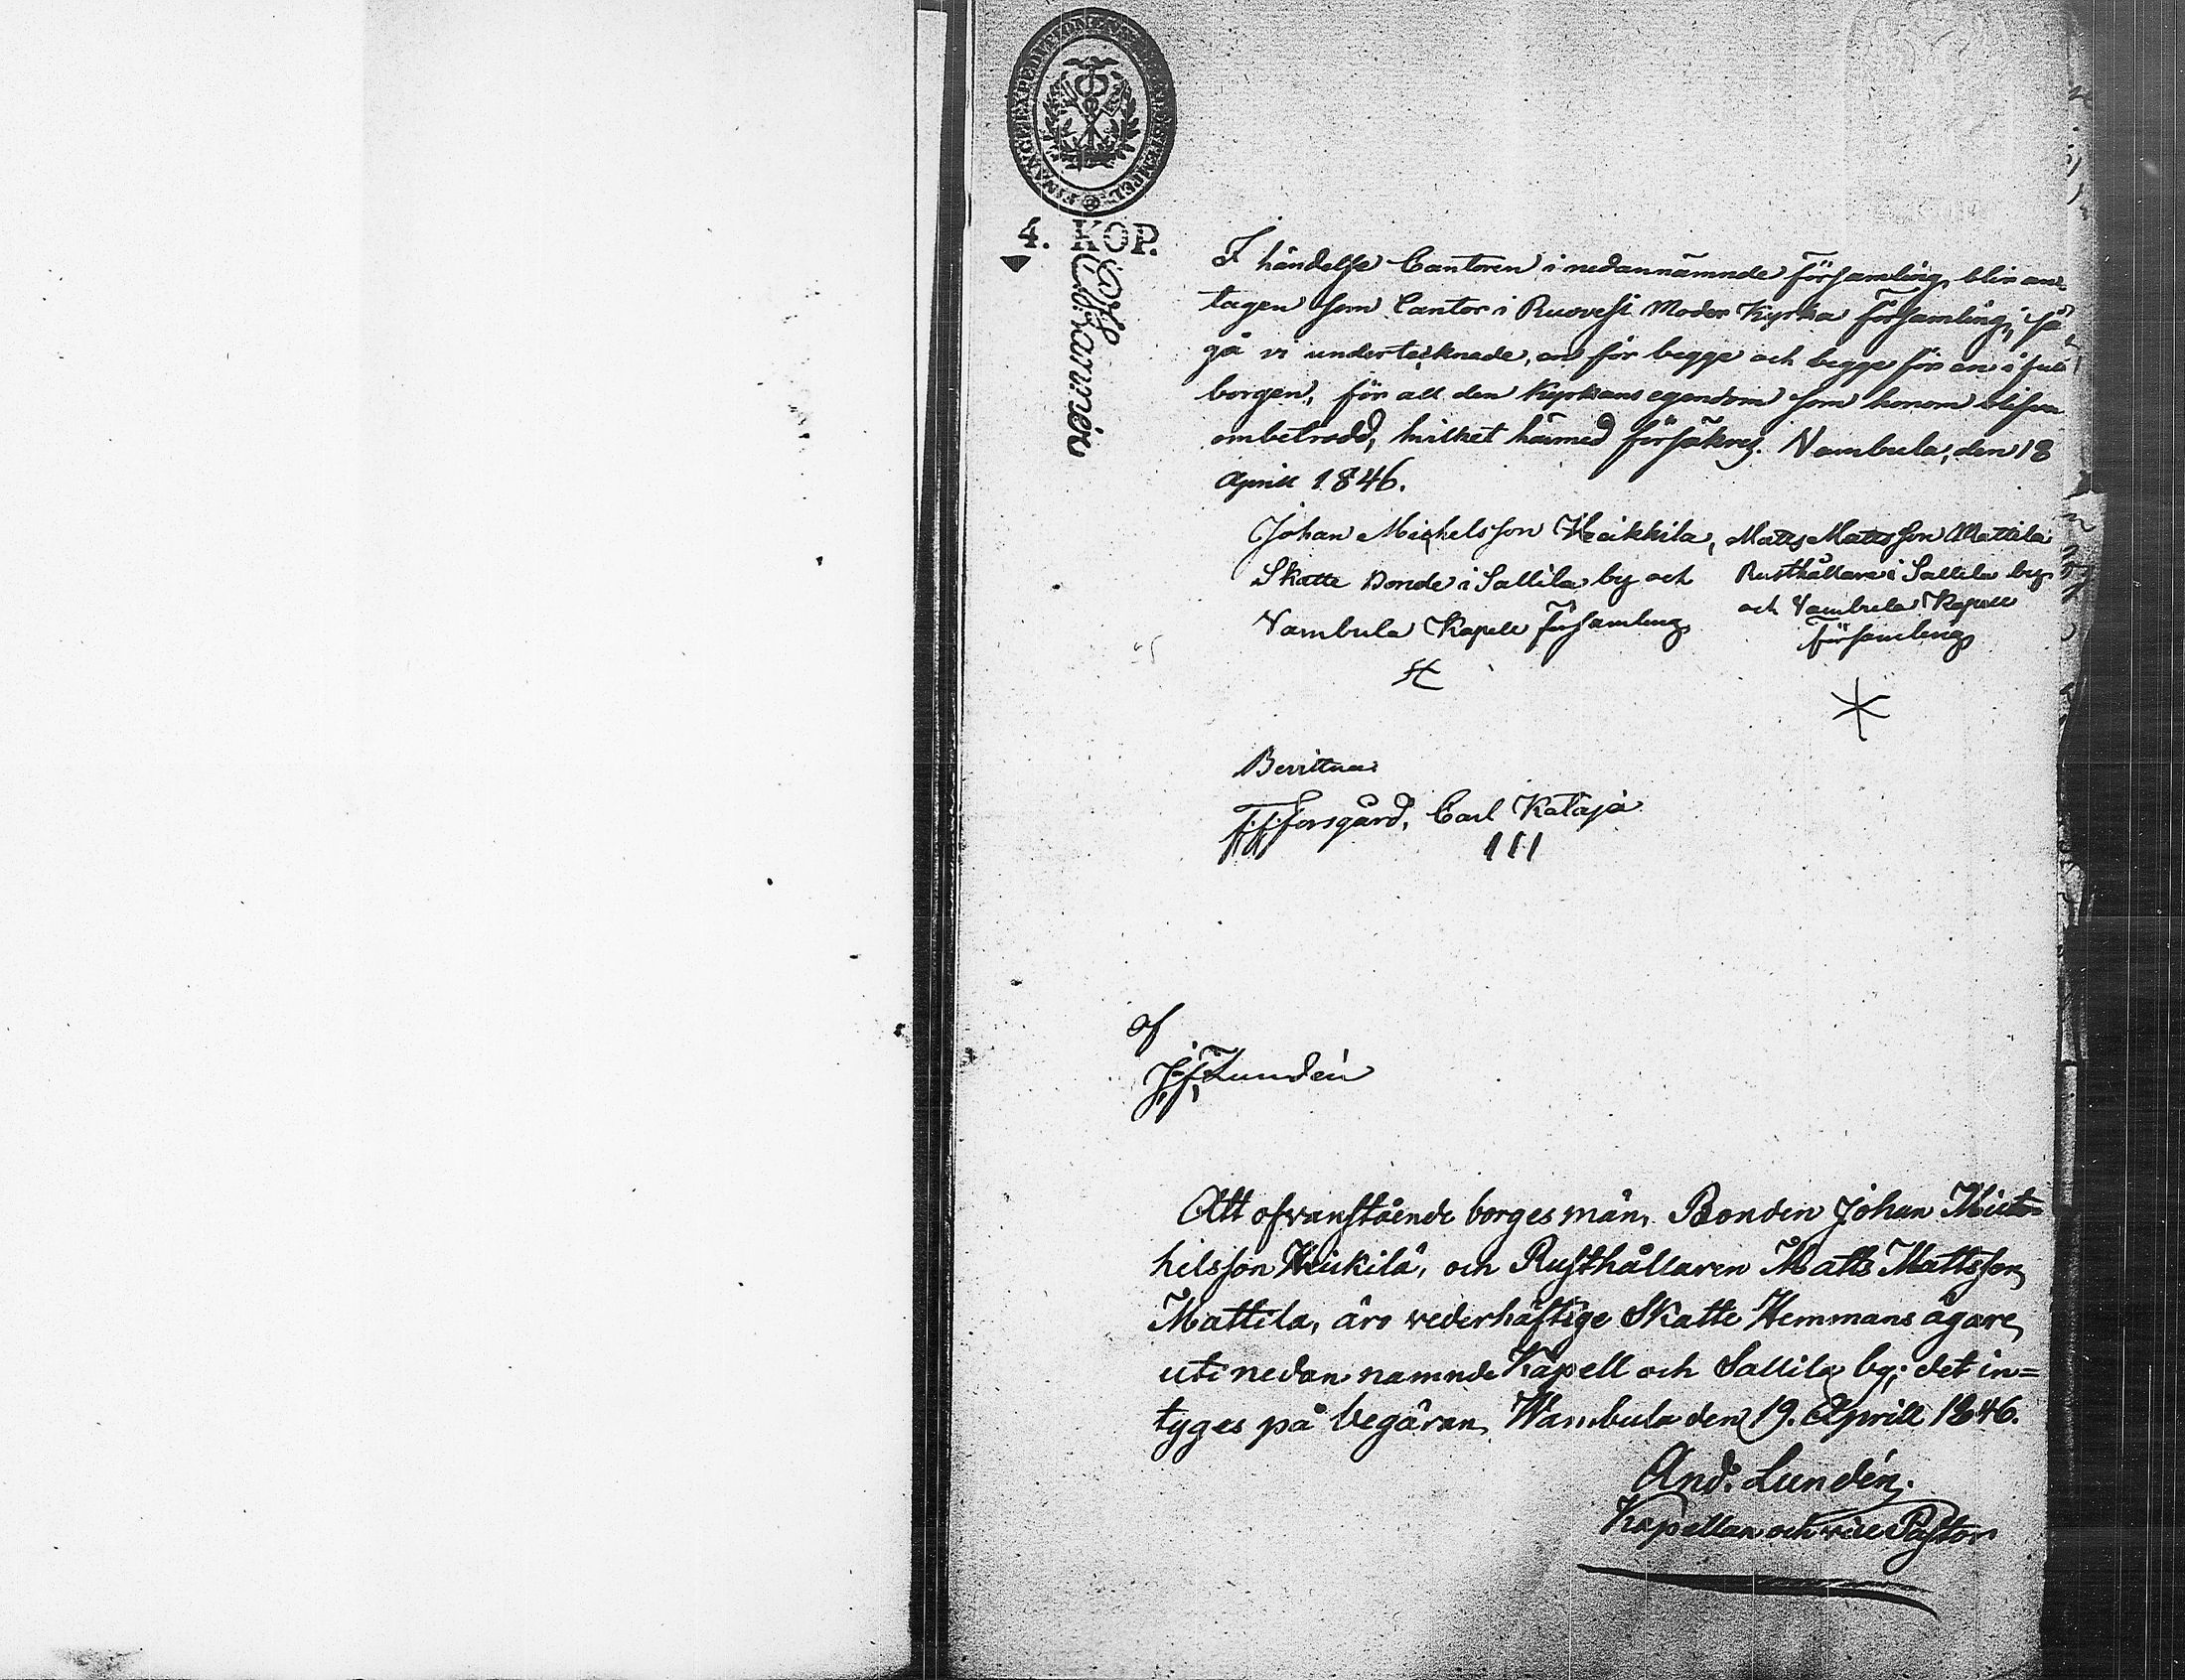 4. KOP.
I händelse Cantoren i nedannämnde församling blir an-
tagen som Cantor i Ruovesi Moder Kyrka församling, så
gå vi undertecknade, en för begge och begge för en i full
borgen, för all den Kyrkans egendom som honom blifver
ombetrodd, hvilket härmed försäkras. Vambula, den 18
Aprill 1846.
Johan Michelsson Heikkila, Matts Mattsson Mattila
Skatte Bonde i Sallila by och Rusthållare i Sallila by
Vambula Kapell församling och Vambula Kapell
församling
Bevittnas
Forsgård, Carl Kataja
III
af
J. F. Lundén
Att ofvanstående borgesmän, Bonden Johan Mich-
helsson Heickilä, och Rusthållaren Matts Mattsson
Mattila, äro vederhäftige Skatte Hemmans ägare,
uti nedan namnde Kapell och Sallila by; det in=
tyges på begäran, Wambula den 19. Aprill 1846.
And. Lundén.
Kapellan och vice Pastor